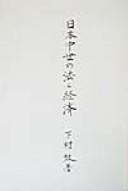 日本中世の法と経済
下村效著